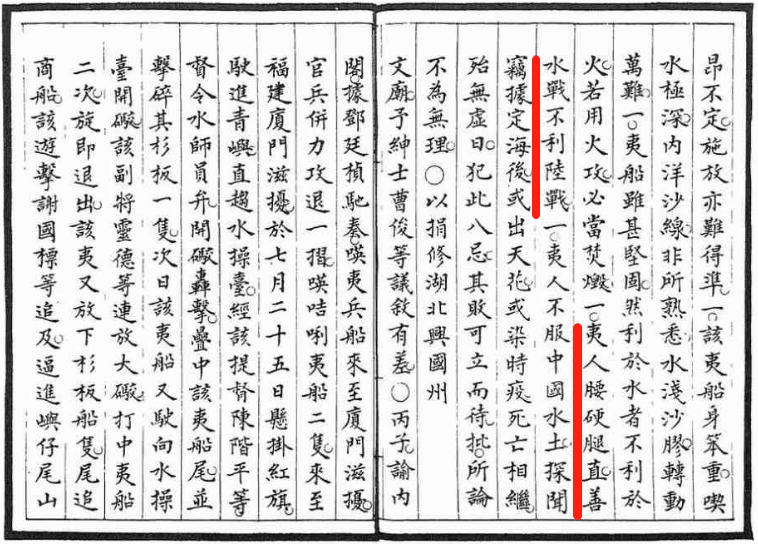 昂不定。施放亦難得準。一。該夷船身笨重。喫
水極深。內洋沙線。非所熟悉。水淺沙膠。轉動
萬難。一。夷船雖甚堅固。然利於水者不利於
火。若用火攻。必當焚燬。一。夷人腰硬腿直。善
水戰不利陸戰。一。夷人不服中國水土。探聞
竊據定海後。或出天花。或染時疫。死亡相繼。
殆無虛日。犯此八忌。其敗可立而待。批。所論
不為無理。○以捐修湖北興國州
文廟。予紳士曹俊等議敘有差。○丙子。諭內
閣。據鄧廷楨馳奏。㗲夷兵船來至廈門滋擾。
官兵併力攻退一摺。㗲咭唎夷船二隻。來至
福建廈門滋擾。於七月二十五日懸掛紅旗。
駛進青嶼。直趨水操臺。經該提督陳階平等
督令水師員弁。開礮轟擊。疊中該夷船尾。並
擊碎其杉板一隻。次日該夷船又駛向水操
臺開礮。該副將靈德等連放大礮。打中夷船
二次。旋即退出。該夷又放下杉板船隻。尾追
商船。該遊擊謝國標等追及。逼進嶼仔尾山